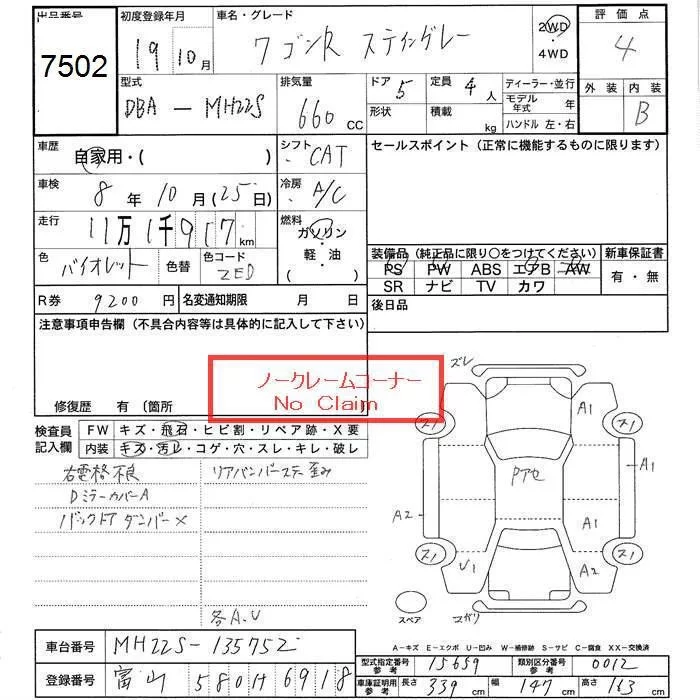 出品番号 初度登録年月 車名・グレード 評価点
7502 19 10月 ワゴンR スティングレー 2WD ・4WD 4
型式 排気量 ドア 5 定員 4人 ディーラー・並行 外装 内装
DBA - MH22S 660 cc 形状 積載 kg モデル年式 年 B
ハンドル 左・右
車歴 自家用・( ) シフト ・CAT セールスポイント(正常に機能するものに限ります)
車検 8年10月(25日) 冷房 ・A/C
走行 11万1千917km 燃料 ガソリン
色 バイオレット 色替 色コード ZED 軽・油 ・( ) 装備品(純正品に限り〇をつけてください) 新車保証書
PS PW ABS エアB AW 有・無
SR ナビ TV カワ
R券 9200円 名変通知期限 月 日 後日品
注意事項申告欄(不具合内容等は具体的に記入して下さい)
ノークレームコーナー
No Claim
修復歴 有(箇所
検査員記入欄 FW キズ・飛石・ヒビ割・リペア跡・X要
内装 キズ・汚レ・コゲ・穴・スレ・キレ・破レ
右電格不良 リアバンパーステー歪み
DミラーカバーA
バックドアダンパー×
各A.U
ズレ
A1
スレ スレ
A1
Pアセ
A2 A1
スレ スレ
U1 A2
スペア マガリ
A-キズ E-エクボ U-凹み W-補修跡 S-サビ C-腐食 XX-交換済
車台番号 MH22S-135752 型式指定番号 参考 15659 類別区分番号 参考 0012
登録番号 富山 580 H 6918 車庫証明用 参考 長さ 339 cm 幅 147 cm 高さ 163 cm